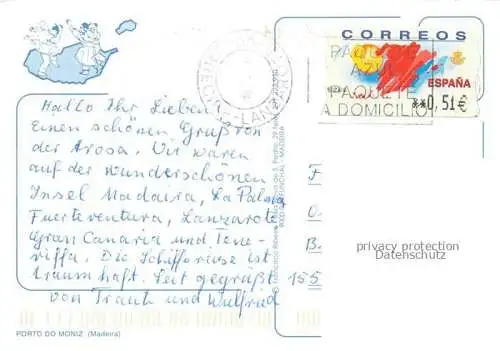 CORREOS
ESPAÑA
**0,51€
PAQUETE
AZUL
PAQUETE
A DOMICILIO
Hallo Ihr Lieben!
Einen schönen Gruß von
der Arosa. Wir waren
auf der wunderschönen
Insel Madaira, La Palma,
Fuerteventura, Lanzarote
Gran Canaria und Tene-
riffa. Die Schiffsreise ist
traumhaft. Seit gegrüßt
von Traudl und Wilfried
155
privacy protection
Datenschutz
PORTO DO MONIZ (Madeira)